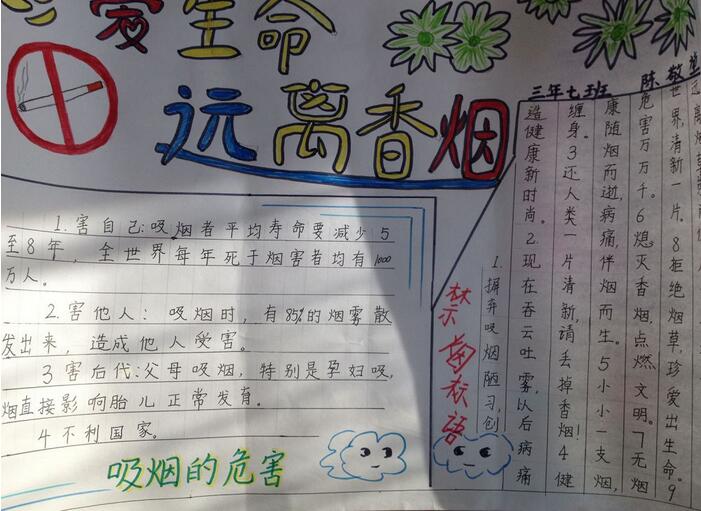 爱生命
远离香烟
三年七班 陈敬
1.害自己:吸烟者平均寿命要减少5
至8年，全世界每年死于烟害者均有1000
万人。
2.害他人：吸烟时，有85%的烟雾散
发出来，造成他人受害。
3害后代:父母吸烟，特别是孕妇吸
烟直接影响胎儿正常发育。
4不利国家。
吸烟的危害
禁 标語
1.摒弃吸烟陋习,创
造健康新时尚。2.现在吞云吐雾,以后病痛
缠身。3还人类一片清新,请丢掉香烟!4健
康随烟而逝,病痛伴烟而生。5小小一支烟,
危害万万千。6熄灭香烟.点燃文明。7无烟
世界,清新一片。8拒绝烟草,珍爱出生命。9